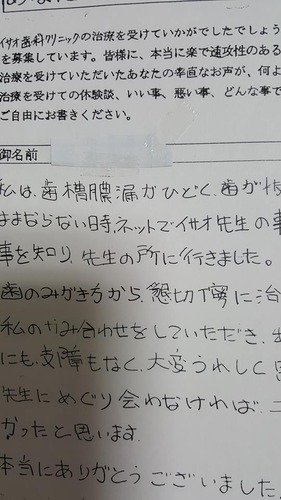 イサオ歯科クリニックの治療を受けていかがでしたでしょう
を募集しています。皆様に、本当に楽で速攻性のある
治療を受けていただいたあなたの率直なお声が、何よ
治療を受けての体験談、いい事、悪い事、どんな事で
ご自由にお書きください。
御名前
私は、歯槽膿漏がひどく、歯が
ままならない時、ネットでイサオ先生の事
事を知り、先生の所に行きました。
歯のみがき方から、懇切丁寧に治
私のかみ合わせをしていただき、
にも、支障もなく、大変うれしく思
先生にめぐり会わなければ、こ
かったと思います。
本当にありがとうございました